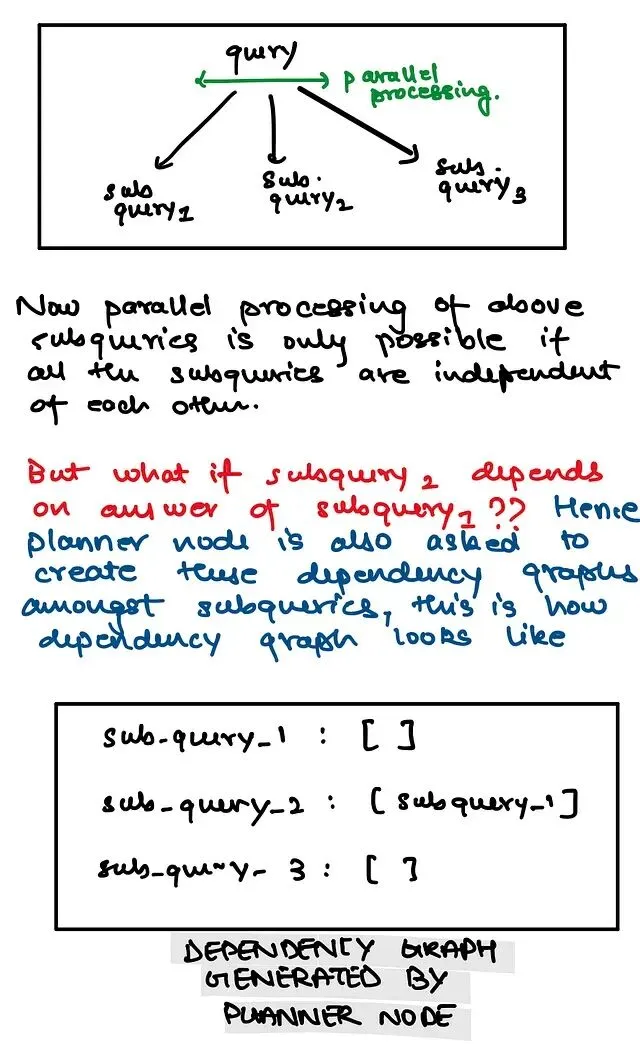 query
parallel
processing.
sub
query1
sub.
query2
sub.
query3
Now parallel processing of above
subqueries is only possible if
all the subqueries are independent
of each other.
But what if subquery2 depends
on answer of subquery1 ?? Hence
planner node is also asked to
create these dependency graphs
amongst subqueries, this is how
dependency graph looks like
sub-query-1 : [ ]
sub-query-2 : [subquery-1]
sub-query-3 : [ ]
DEPENDENCY GRAPH
GENERATED BY
PLANNER NODE